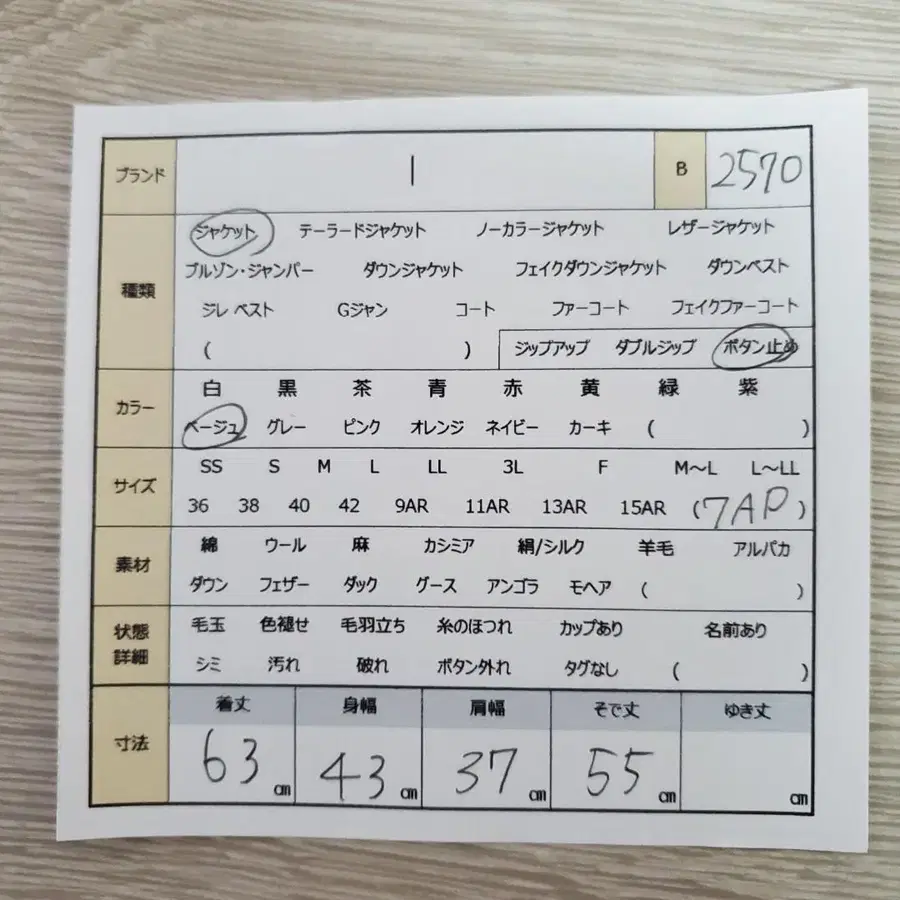 ブランド | B 2570
種類
ジャケット テーラードジャケット ノーカラージャケット レザージャケット
ブルゾン・ジャンパー ダウンジャケット フェイクダウンジャケット ダウンベスト
ジレ ベスト Gジャン コート ファーコート フェイクファーコート
( ) ジップアップ ダブルジップ ボタン止め
カラー
白 黒 茶 青 赤 黄 緑 紫
ベージュ グレー ピンク オレンジ ネイビー カーキ ( )
サイズ
SS S M L LL 3L F M～L L～LL
36 38 40 42 9AR 11AR 13AR 15AR (7AP)
素材
綿 ウール 麻 カシミア 絹/シルク 羊毛 アルパカ
ダウン フェザー ダック グース アンゴラ モヘア ( )
状態
詳細
毛玉 色褪せ 毛羽立ち 糸のほつれ カップあり 名前あり
シミ 汚れ 破れ ボタン外れ タグなし ( )
寸法
着丈 身幅 肩幅 そで丈 ゆき丈
63 cm 43 cm 37 cm 55 cm cm